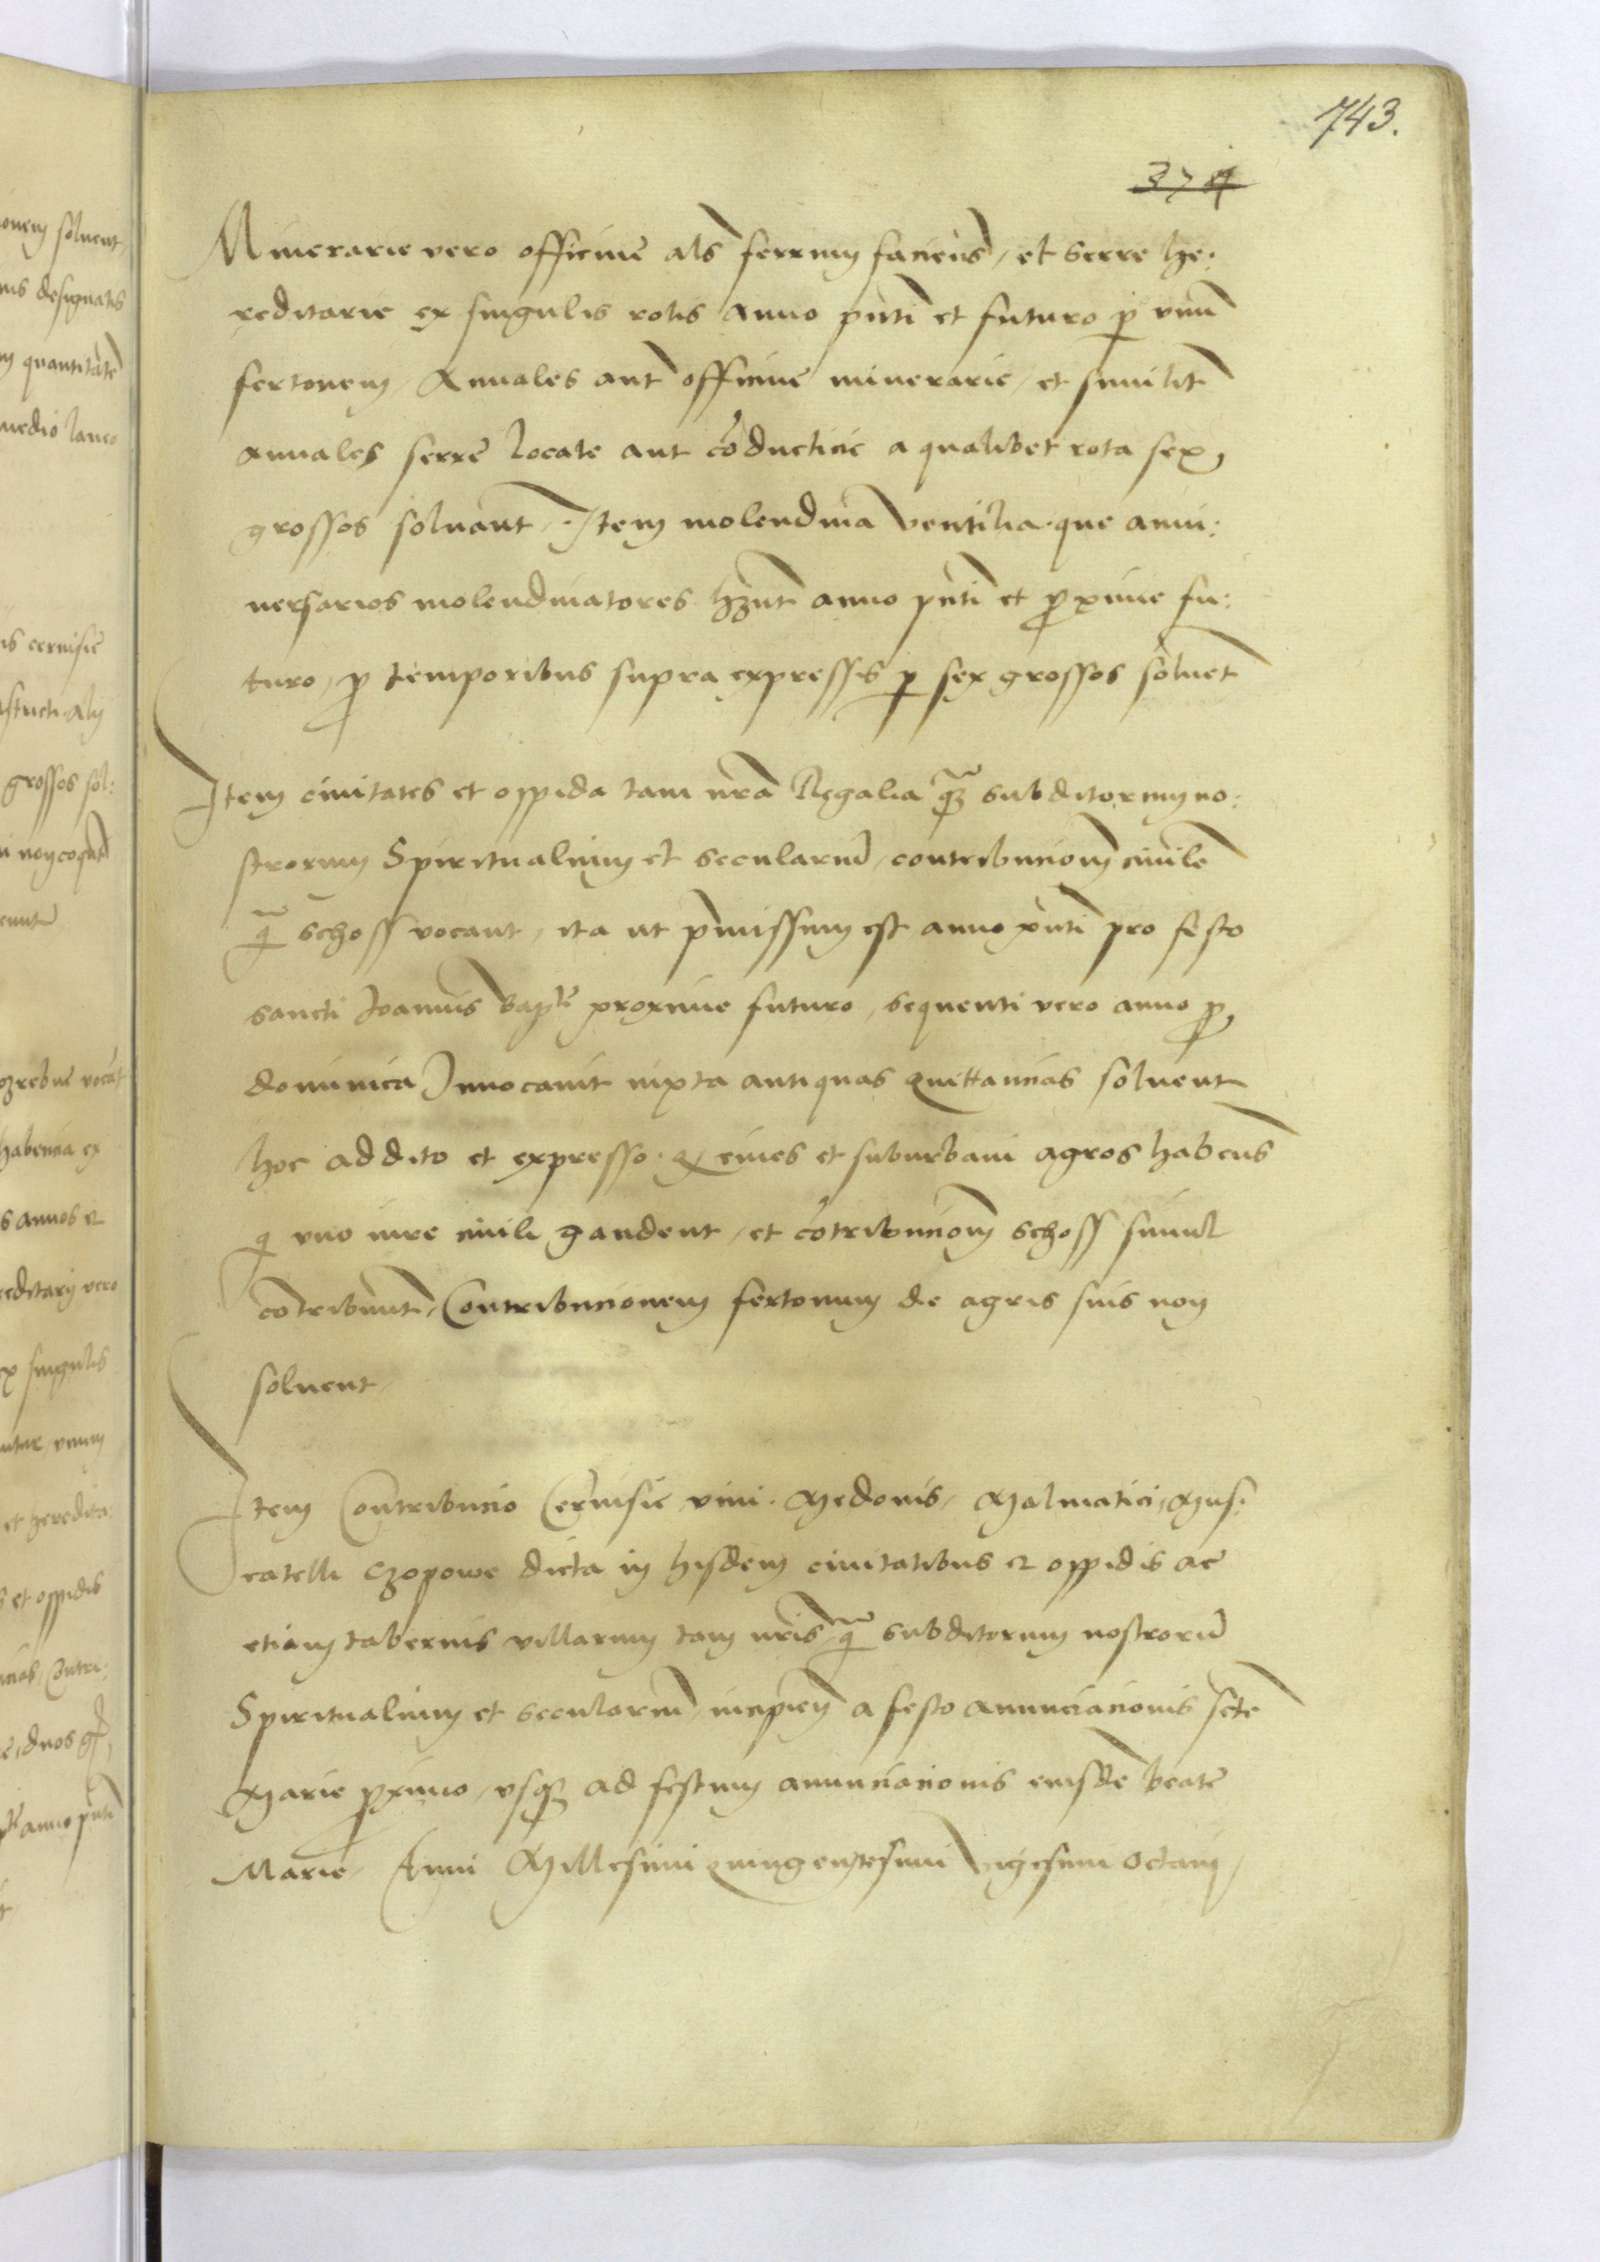 743.
374
Minerarie vero officine als ferrum faciens, et serre he:
reditarie ex singulis rotis anno pnti et futuro p unu
fertonem. Annales aut officine minerarie, et similit
annales serre locate aut coducticie a qualibet rota sex
grossos soluant. Item molendina ventilia que anni:
uersarios molendinatores hnt anno pnti et proxime fu:
turo, pro temporibus supra expressis p sex grossos soluet
Item ciuitates et oppida tam nra Regalia q subditorum no:
strorum Spiritualium et seculariu, contribucionem ciuile
q schoss vocant, ita ut pmissum est anno pnti pro festo
sancti Joannis bapte proxime futuro, sequenti vero anno pro
dominica Inuocauit iuxta antiquas quittancias soluent
hoc addito et expresso q ciues et suburbani agros habens
q uno iure ciuili gaudent, et cotribucionem schoss simul
contribuunt, Contribucionem fertonum de agris suis non
soluent
Item Contribucio Ceruisie vini Medonis, Malmatici, Mus:
catelli Czopowe dicta in hisdem ciuitatibus et oppidis ac
etiam tabernis villarum tam nris q subditorum nostroru
Spiritualium et secularium, incipien a festo annunciacionis scte
Marie proximo, usq ad festum annunciacionis eiusde beate
Marie, Anni Millesimi quingentesimi vigesimi octaui,
onem soluent,
nis designatis
quantitate
medio laneo
is ceruisie
grossos sol:
vocat
habencia ex
s annos et
reditarij vero
ex singulis
unum
et heredita
s et oppidis
duos
anno pnti